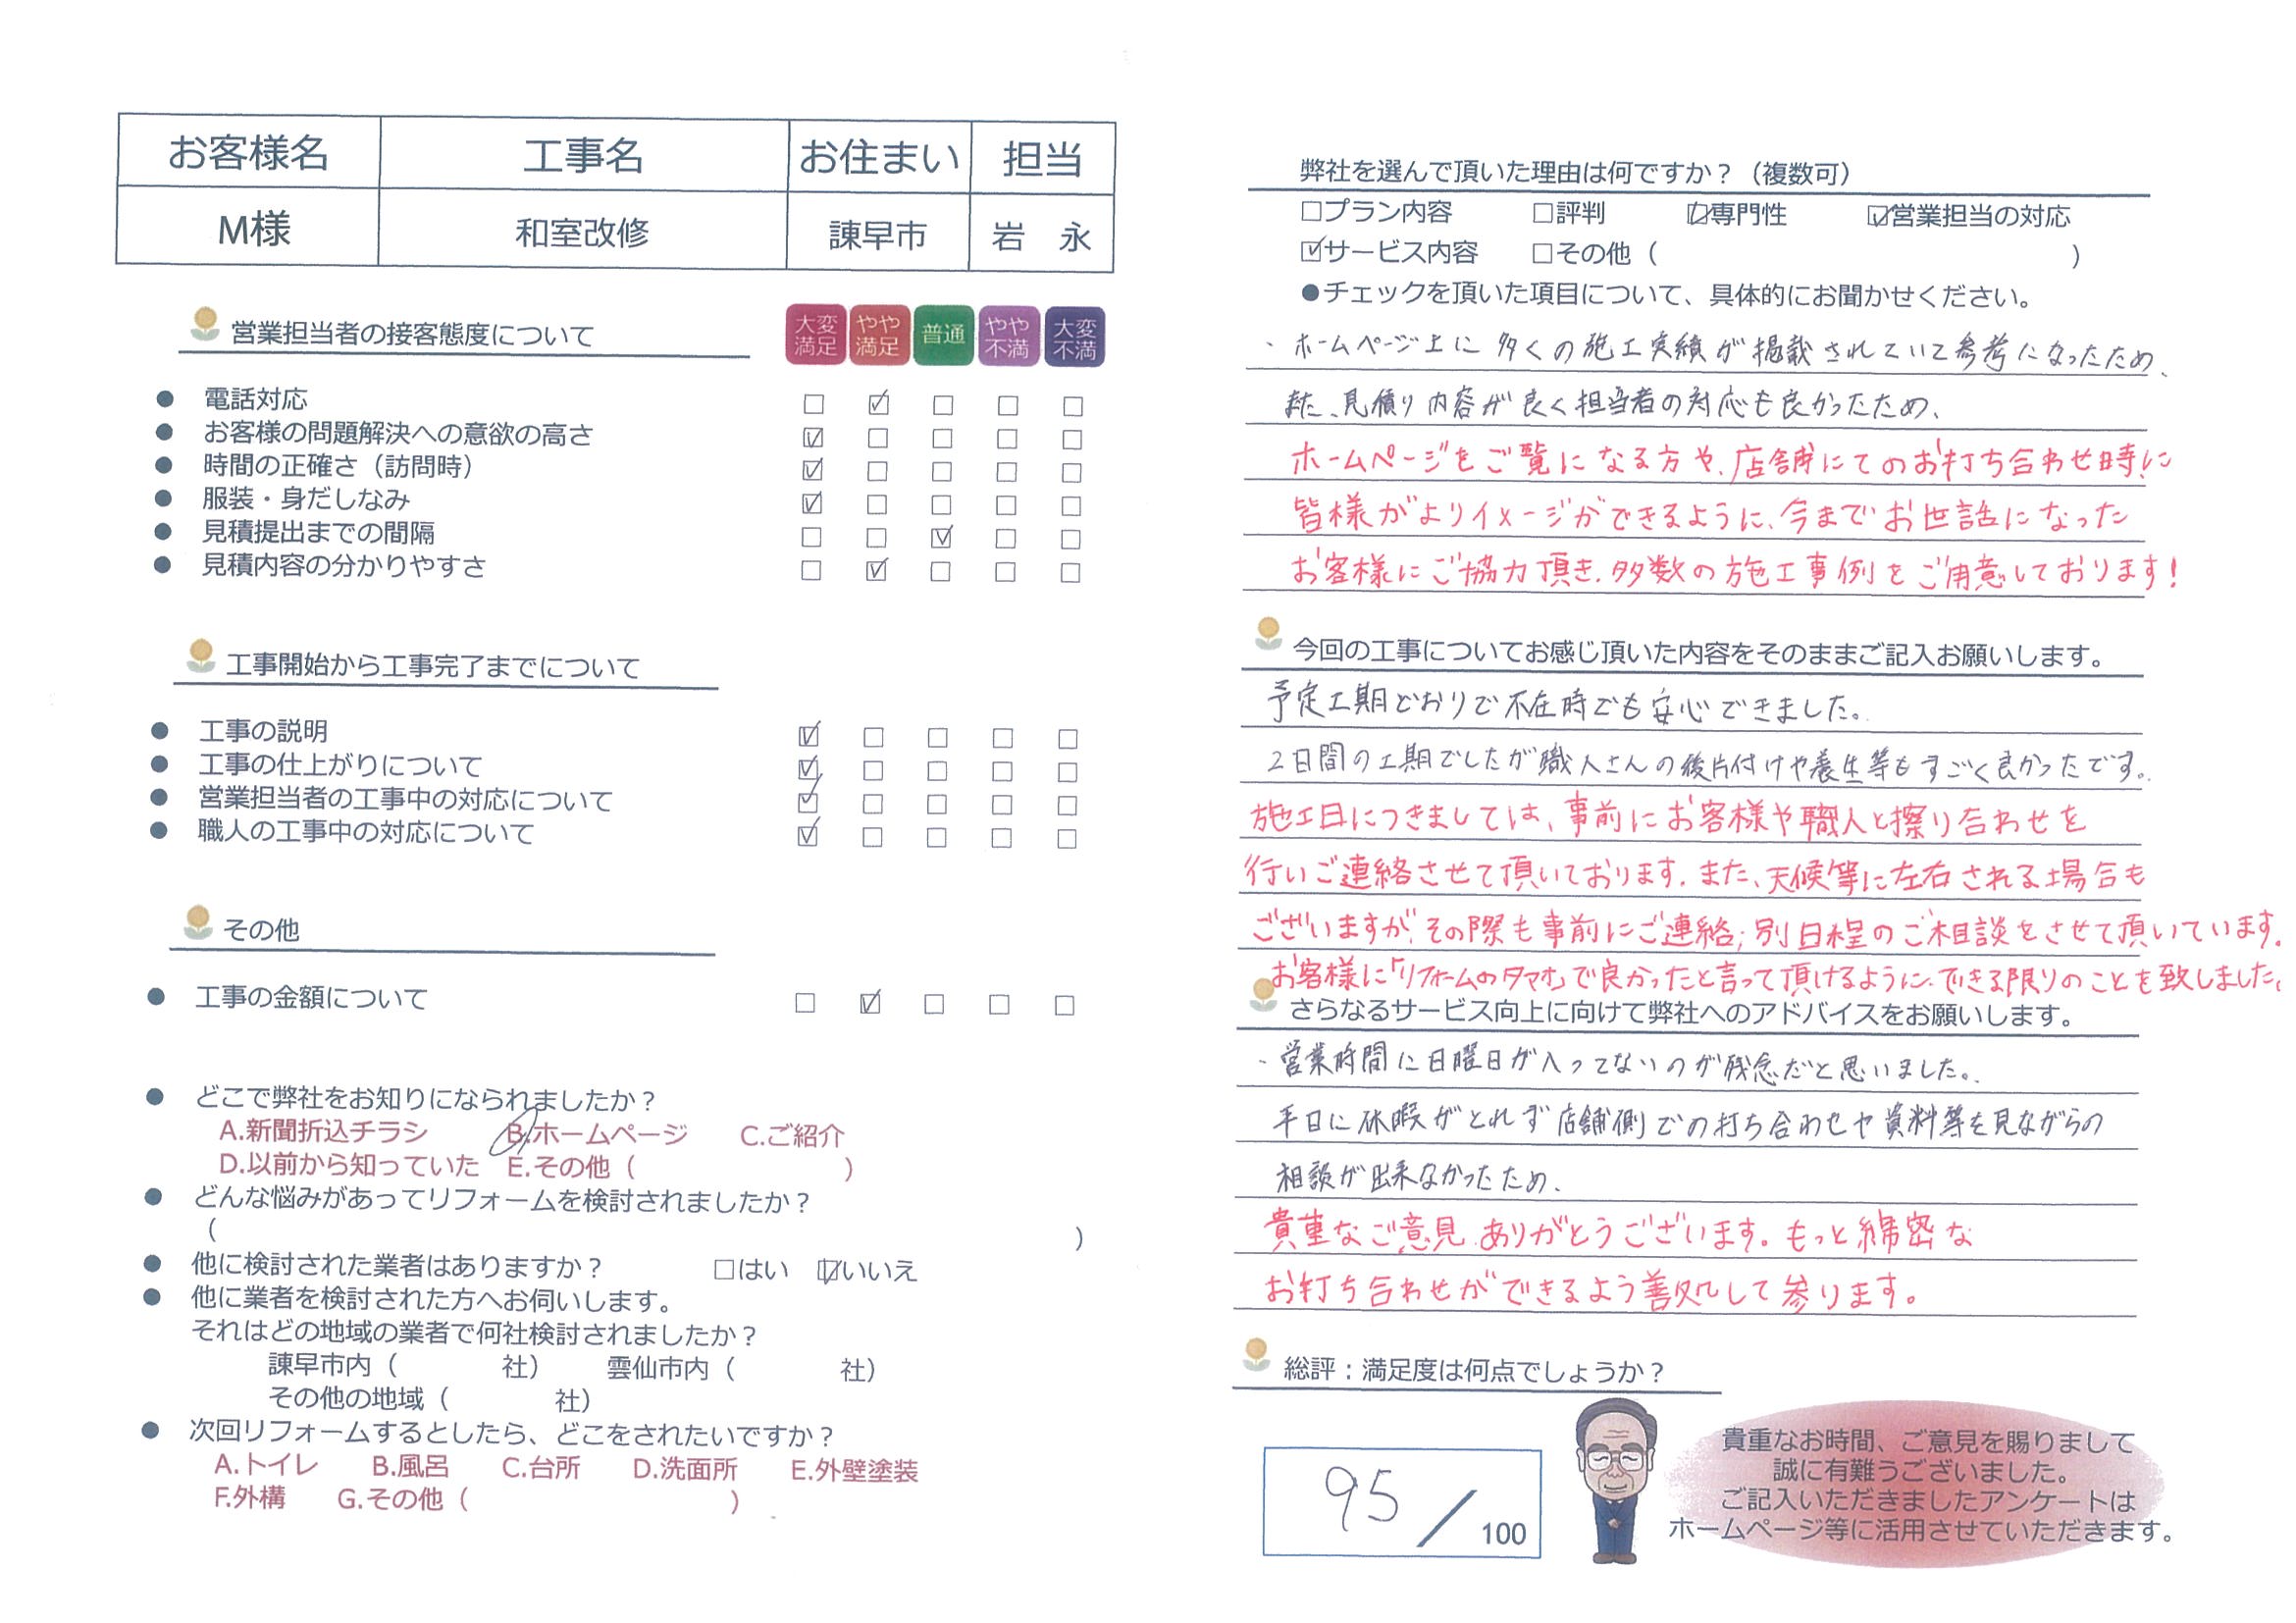 お客様名 工事名 お住まい 担当
M様 和室改修 諫早市 岩 永
営業担当者の接客態度について
大変満足 やや満足 普通 やや不満 大変不満
● 電話対応 □ ☑ □ □ □
● お客様の問題解決への意欲の高さ ☑ □ □ □ □
● 時間の正確さ（訪問時） ☑ □ □ □ □
● 服装・身だしなみ ☑ □ □ □ □
● 見積提出までの間隔 □ □ ☑ □ □
● 見積内容の分かりやすさ □ ☑ □ □ □
工事開始から工事完了までについて
● 工事の説明 ☑ □ □ □ □
● 工事の仕上がりについて ☑ □ □ □ □
● 営業担当者の工事中の対応について ☑ □ □ □ □
● 職人の工事中の対応について ☑ □ □ □ □
その他
● 工事の金額について □ ☑ □ □ □
● どこで弊社をお知りになられましたか？
A.新聞折込チラシ B.ホームページ C.ご紹介
D.以前から知っていた E.その他（ ）
● どんな悩みがあってリフォームを検討されましたか？
（ ）
● 他に検討された業者はありますか？ □はい ☑いいえ
● 他に業者を検討された方へお伺いします。
それはどの地域の業者で何社検討されましたか？
諫早市内（ 社） 雲仙市内（ 社）
その他の地域（ 社）
● 次回リフォームするとしたら、どこをされたいですか？
A.トイレ B.風呂 C.台所 D.洗面所 E.外壁塗装
F.外構 G.その他（ ）
弊社を選んで頂いた理由は何ですか？（複数可）
□プラン内容 □評判 ☑専門性 ☑営業担当の対応
☑サービス内容 □その他（ ）
●チェックを頂いた項目について、具体的にお聞かせください。
・ホームページ上に多くの施工実績が掲載されていて参考になったため、
また、見積り内容が良く担当者の対応も良かったため、
ホームページをご覧になる方や、店舗にてのお打ち合わせ時に
皆様がよりイメージができるように、今までお世話になった
お客様にご協力頂き、多数の施工事例をご用意しております！
今回の工事についてお感じ頂いた内容をそのままご記入お願いします。
予定工期どおりで不在時でも安心できました。
2日間の工期でしたが職人さんの後片付けや養生等もすごく良かったです。
施工日につきましては、事前にお客様や職人と擦り合わせを
行いご連絡させて頂いております。また、天候等に左右される場合も
ございますが、その際も事前にご連絡、別日程のご相談をさせて頂いています。
お客様に「リフォームのタマオ」で良かったと言って頂けるように、できる限りのことを致しました。
さらなるサービス向上に向けて弊社へのアドバイスをお願いします。
・営業時間に日曜日が入ってないのが残念だと思いました。
平日に休暇がとれず店舗側での打ち合わせや資料等を見ながらの
相談が出来なかったため、
貴重なご意見、ありがとうございます。もっと綿密な
お打ち合わせができるよう善処して参ります。
総評：満足度は何点でしょうか？
95／100
貴重なお時間、ご意見を賜りまして
誠に有難うございました。
ご記入いただきましたアンケートは
ホームページ等に活用させていただきます。